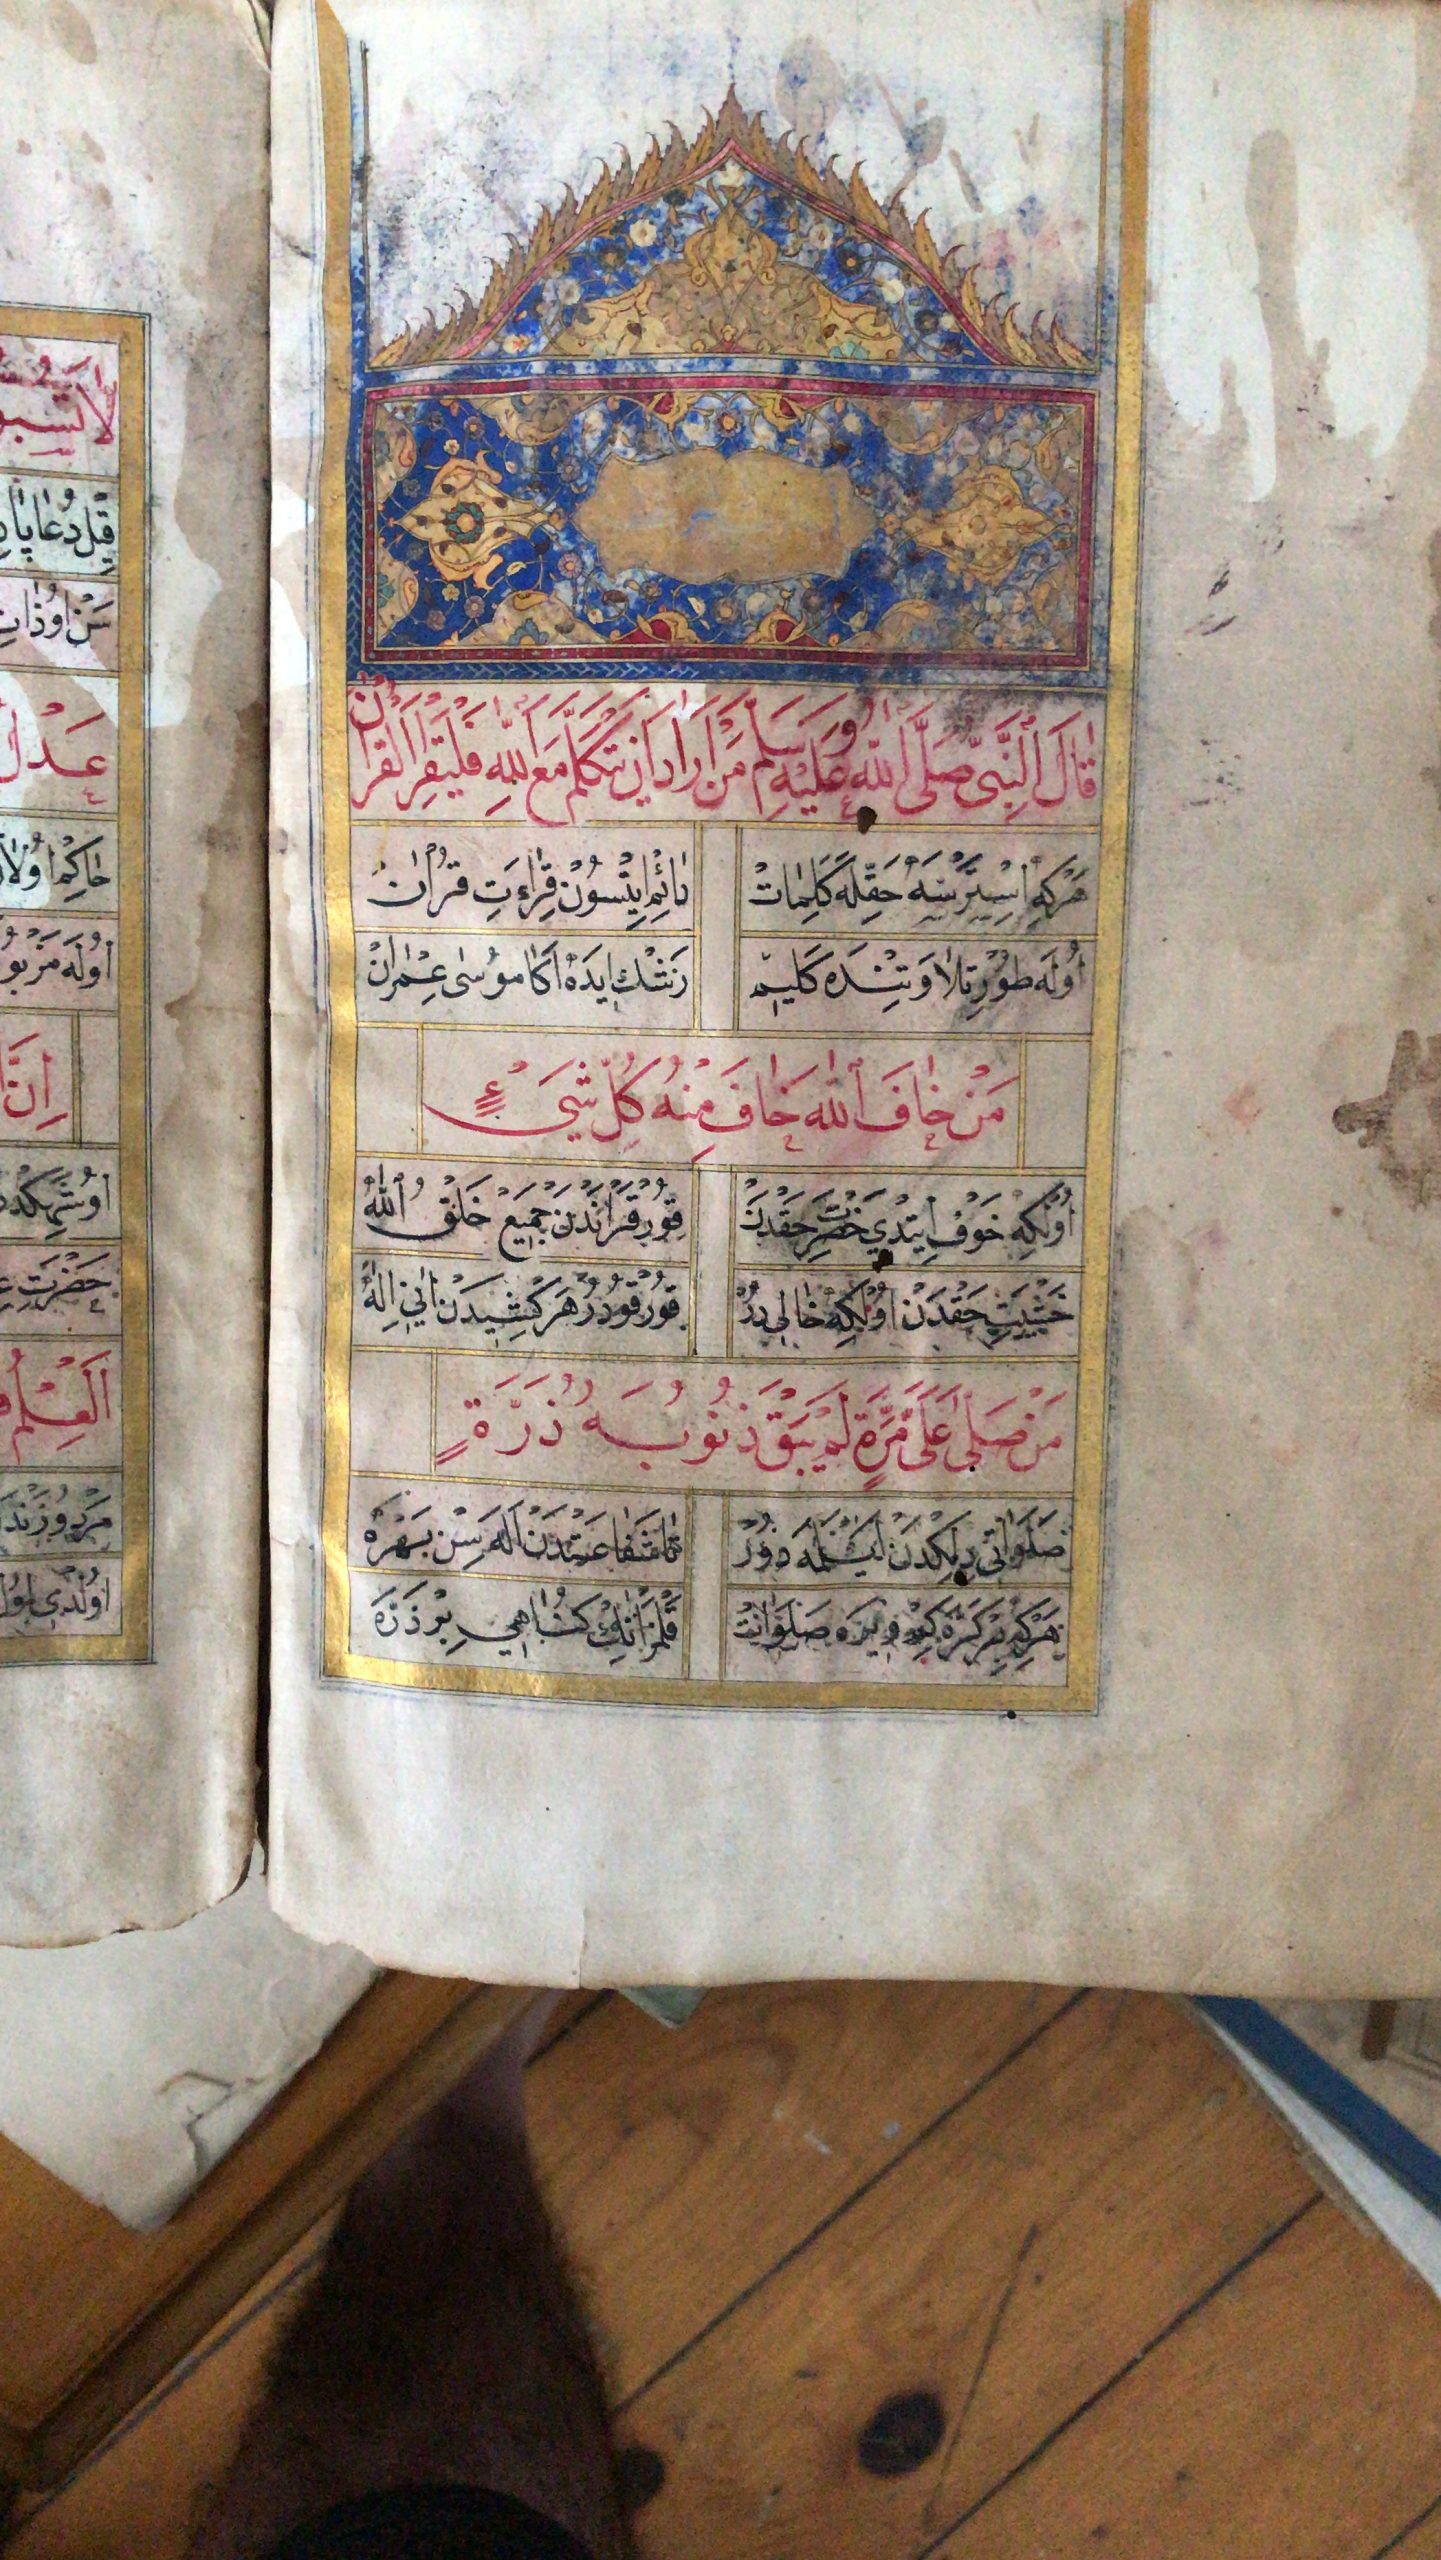 قَالَ النَّبِىُّ صَلَّى اللّٰهُ عَلَيْهِ وَسَلَّمَ مَنْ اَرَادَ اَنْ يَتَكَلَّمَ مَعَ اللّٰهِ فَلْيَقْرَاِ الْقُرْاٰنَ
هَرْكِهِ اِسْتِرْسَهْ حَقِلَهْ كَلِمَاتْ دَائِمْ اِيتْسُونْ قِرَاءَتِ قُرْاٰنْ
اُولَهْ طُورِ تِلَاوَتِنْدَهْ كَلِيمْ رَشْك اِيدَهْ اَكَا مُوسٰى عِمْرَانْ
مَنْ خَافَ اللّٰهَ خَافَ مِنْهُ كُلُّ شَىْءٍ
اُولْكِهْ خَوْف اِيتْدِي حَضْرَتِ حَقْدَنْ قُورْقَرْ اَنْدَنْ جَمِيعِ خَلْقُ اللّٰهْ
خَشْيَتِ حَقْدَنْ اُولْكِهْ خَالِى دُرْ قُورْقُودُرْ هَرْكِشِيدَنْ اَنِى اِلٰهْ
مَنْ صَلَّى عَلَىَّ مَرَّةً لَمْ يَبْقَ ذُنُوبَهُ ذَرَّةٍ
صَلَوَاتِى دِلِكْدَنْ اَيْلَمَهْ دُورْ تَا شَفَاعَتْدَنْ اَلَهْ سِنْ بَهْرَهْ
هَرْكِهْ بِرْ كَرَّهْ وِيرَهْ صَلَوَاتْ قَلْمَزْ اَنِكْ كُنَاهِى بِرْ ذَرَّهْ
لَا تَسُبُّو
قِيلْ دُعَا پَاد
سَنْ اُو ذَاتِ
عَدْلُ
حَاكِمْ اُولَا
اُولَهْ مَرْبُو
اِنَّ
حَضْرَتِ
اَلْعِلْمُ
اُولْدِى